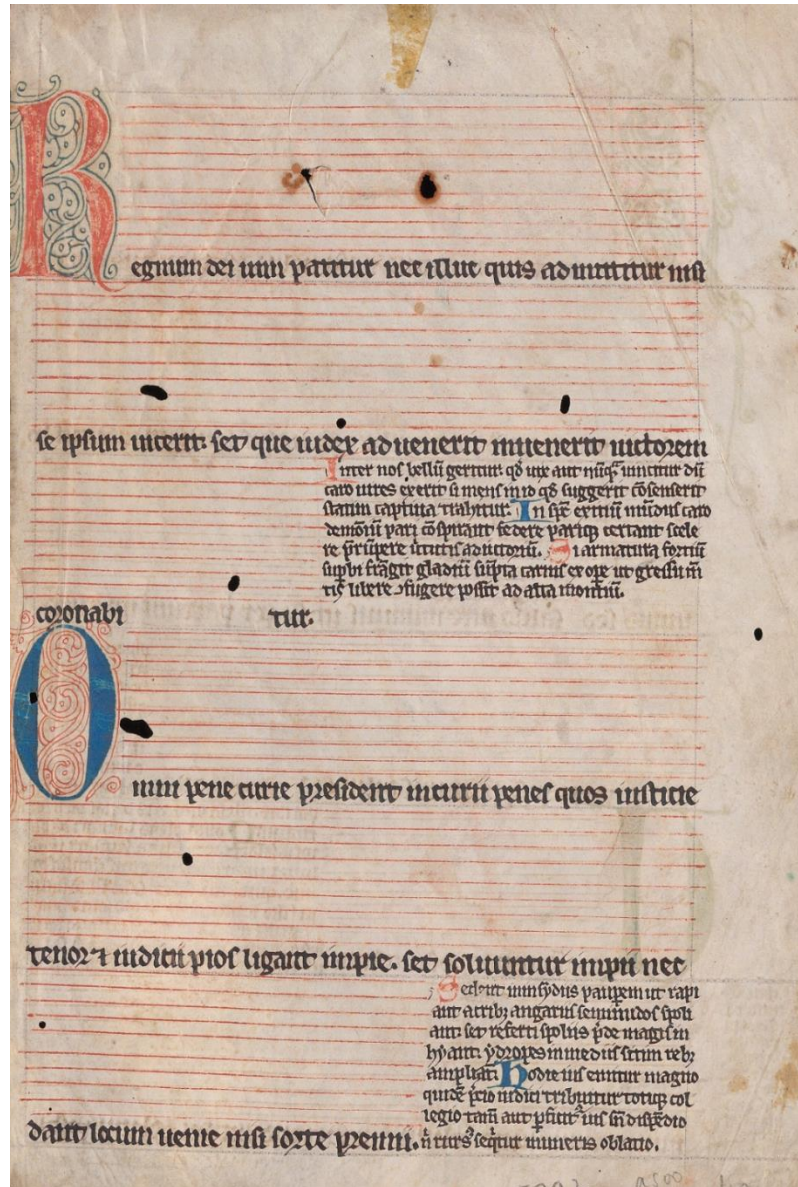 Regnum dei uim patitur nec illuc quis ad uintitur nisi
se ipsum uicerit. set que iudex aduenerit inuenerit uictorem
Inter nos bellū geritur. qď uix aut nūq̄ uincitur dū
caro uires exerit si mens in id qď suggerit cōsenserit
statim captiua trahitur. In sp̄e exitiū mūdus caro
demoniū pari cōspirant federe pariq; certant scele
re p̄rūpere uirtutis adiutoriū. Si armatura fortiū
sup̄bi frāgit gladiū sūpta carnis ex ope ut gressū m̄
tis libere ꝯfugere possit ad alta montiū.
coronabi tur.
Omni pene curie president incurii penes quos iusticie
tenor ⁊ iudicii pios ligant impie. set soluuntur impii nec
Sediut in insydiis paupem ut rapi
ant atrib; angariis seminudos spoli
ant. set referti spoliis p̄de magis in
hyant. ydropes in mediis sitim reb;
ampliant. Hodie ius emitur magno
quidē p̄cio iudici tribuitur totiq; col
legio tam̄ aut p̄fitur ius sn̄ dispēdio
dant locum uenie nisi sorte premii. n̄ rurs seq̄tur muneris oblatio.